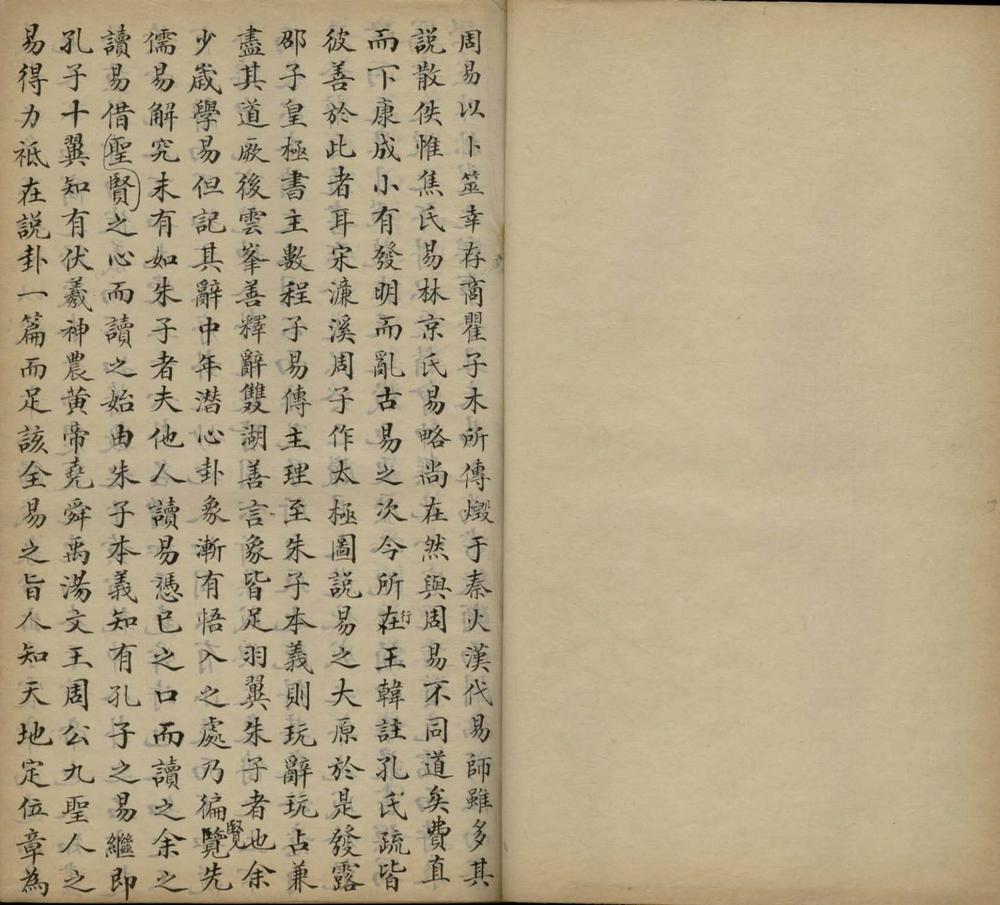 周易以卜筮幸存商瞿子木所傳燬于秦火漢代易師雖多其
說散佚惟焦氏易林京氏易略尚在然與周易不同道矣費直
而下康成小有發明而亂古易之次今所在行王韓註孔氏疏皆
彼善於此者耳宋濂溪周子作太極圖說易之大原於是發露
邵子皇極書主數程子易傳主理至朱子本義則玩辭玩占兼
盡其道厥後雲峯善釋辭雙湖善言象皆足羽翼朱子者也余
少歲學易但記其辭中年潛心卦象漸有悟入之處乃徧覽覽先
儒易解究未有如朱子者夫他人讀易憑已之口而讀之余之
讀易借聖賢之心而讀之始由朱子本義知有孔子之易繼即
孔子十翼知有伏羲神農黃帝堯舜禹湯文王周公九聖人之
易得力祇在說卦一篇而足該全易之旨人知天地定位章為